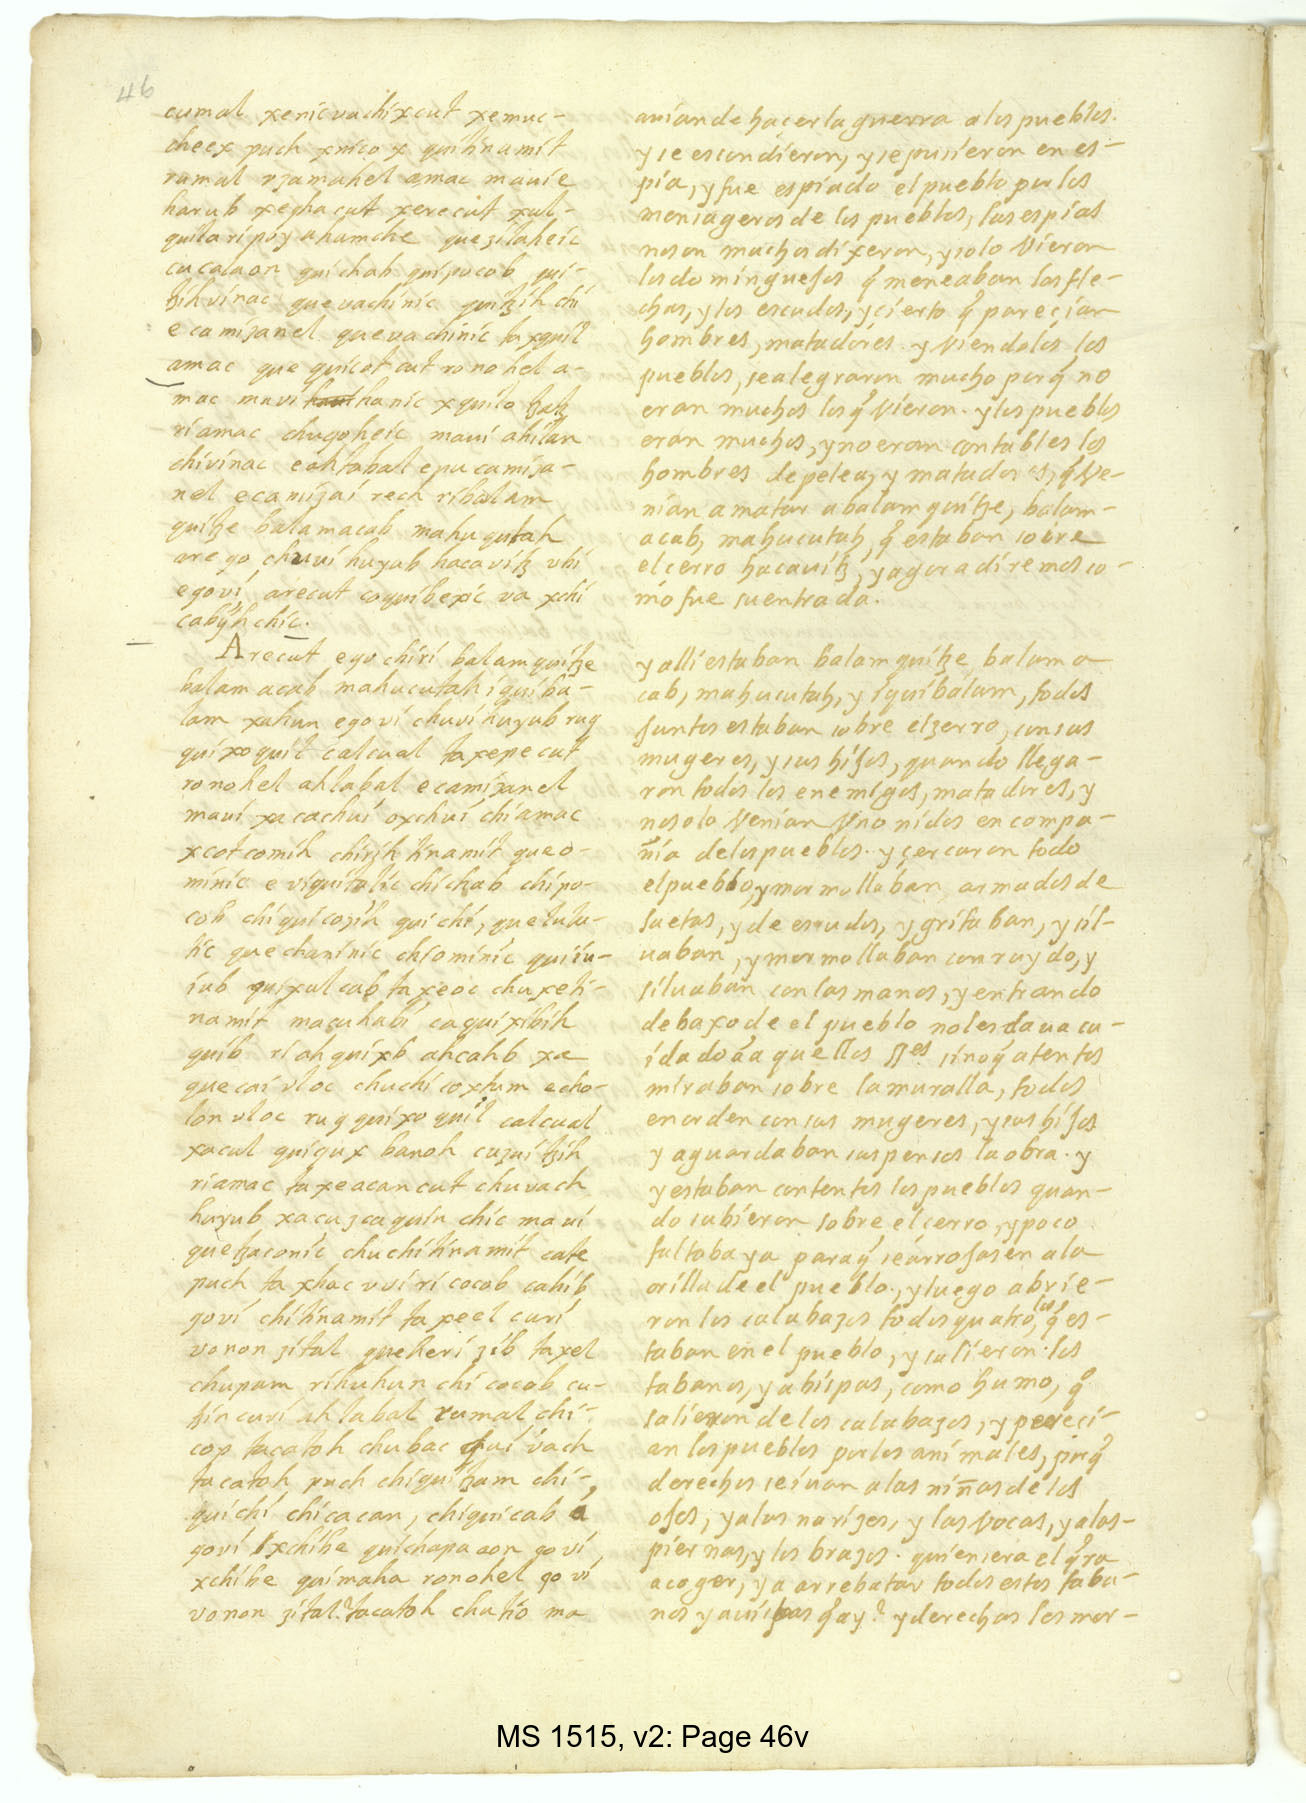 46
cumal xenicvachixcut xemuc-
cheex puch xnico x quitinamit
rumal rzamahel amac mavie
harub xecha cut xere cut xul-
quila ri poy ahamche que zilaheic
cucalaon quichab quipocob qui-
tzih vinac que vachinic quitzih chi
e camizanel que vachinic ta xquil
amac que quicot cut ronohel a-
mac mavi hanic xquilo tzatz
ri amac chugoheic mavi ahilan
chivinac e ahlabal e pu camiza-
nel e camizai rech ri balam
quitze balam acab mahucutah
are go chuvi huyub hacavitz vbi
e govi, arecut coquibexic va xchi
cabijh chic.
Arecut e go chiri balam quitze
balam acab mahucutah iquiba-
lam xahun e govi chuvi huyub rug
quixoquil calcual ta xepe cut
ronohel ahlabal e camizanel
mavi xa cachui oxchui chi amac
xcotcomih chirih tinamit que o-
minic e viquitalic chi chab chi po-
cob chiquicozih quichi, que lulu-
tic que chaninic chiominic quiiu-
iub quixulcab ta xeoc chuxe ti-
namit macuhabi caquixibih
quib ri ahquixb ahcahb xa
que cai vloc chuchi coxtum e cho-
lon vloc rug quixoquil calcual
xacul quiqux banoh cuzui tzih
ri amac ta xeacan cut chuvach
huyub xacuzcaquin chic mavi
quetzaconic chuchi tinamit cate
puch ta xhac vvi ri cocob cahib
govi chi tinamit ta xeel curi
vonon zital queheri zib ta xel
chupam rihuhun chi cocob cu-
tzin curi ahlabal rumal chi-
cop tacatoh chubac qui vach
tacatoh puch chiquitzam chi-
quichi chicacan, chiquicab a
govi xchibe quichapa aon govi
xchibe quimaha ronohel govi
vonon zital? tacatoh chutio ma
auian de haçer la guerra a los pueblos.
y se escondieron, y se pusieron en es-
pia, y fue espiado el pueblo por los
mensageros de los pueblos, las espias
no son muchos dixeron, y solo Vieron
los dominguejos q̃ meneaban las fle-
chas, y los escudos, y cierto q̃ pareçian
hombres, matadores. y Viendolos los
pueblos, se alegraron mucho porq̃ no
eran muchos los q̃ Vieron. y los pueblos
eran muchos, y no eran contables los
hombres de pelea, y matadores, q̃ Ve-
nian a matar a balam quitze, balam-
acab, mahucutah, q̃ estaban sobre
el cerro hacauitz, y agora diremos co-
mo fue su entrada.
y alli estaban balam quitze balam a
cab, mahucutah, y iquibalam, todos
juntos estaban sobre el zerro, con sus
mugeres, y sus hijos, quando llega-
ron todos los enemigos, matadores, y
no solo Venian Vno ni dos en compa-
ñia de los pueblos. y çercaron todo
el pueblo, y mormollaban, armados de
saetas, y de escudos, y gritaban, y sil-
uaban, y mormollaban con ruydo, y
siluaban con las manos, y entrando
debaxo de el pueblo no les daua cu-
idado aaquellos sses sinoq̃ atentos
miraban sobre la muralla, todos
en orden con sus mugeres, y sus hijos
y aguardaban suspensos la obra. y
y estaban contentos los pueblos quan-
do subieron sobre el cerro, y poco
faltaba ya para q̃ se arrojasen a la
orilla de el pueblo, y luego abrie-
ron los calabazos todos quatro, los q̃ es-
taban en el pueblo, y salieron. los
tabanos, y abispas, como humo, q̃
salieron de los calabazos, y pereçi-
an los pueblos por los animales, porq̃
derechos se iuan a las niñas de los
ojos, y a las narizes, y las Vocas, y a las-
piernas, y los brazos. quien sera el q̃ va
a coger, y a arrebatar todos estos taba-
nos y auispas q̃ ay? y derechos los mor-
MS 1515, v2: Page 46v